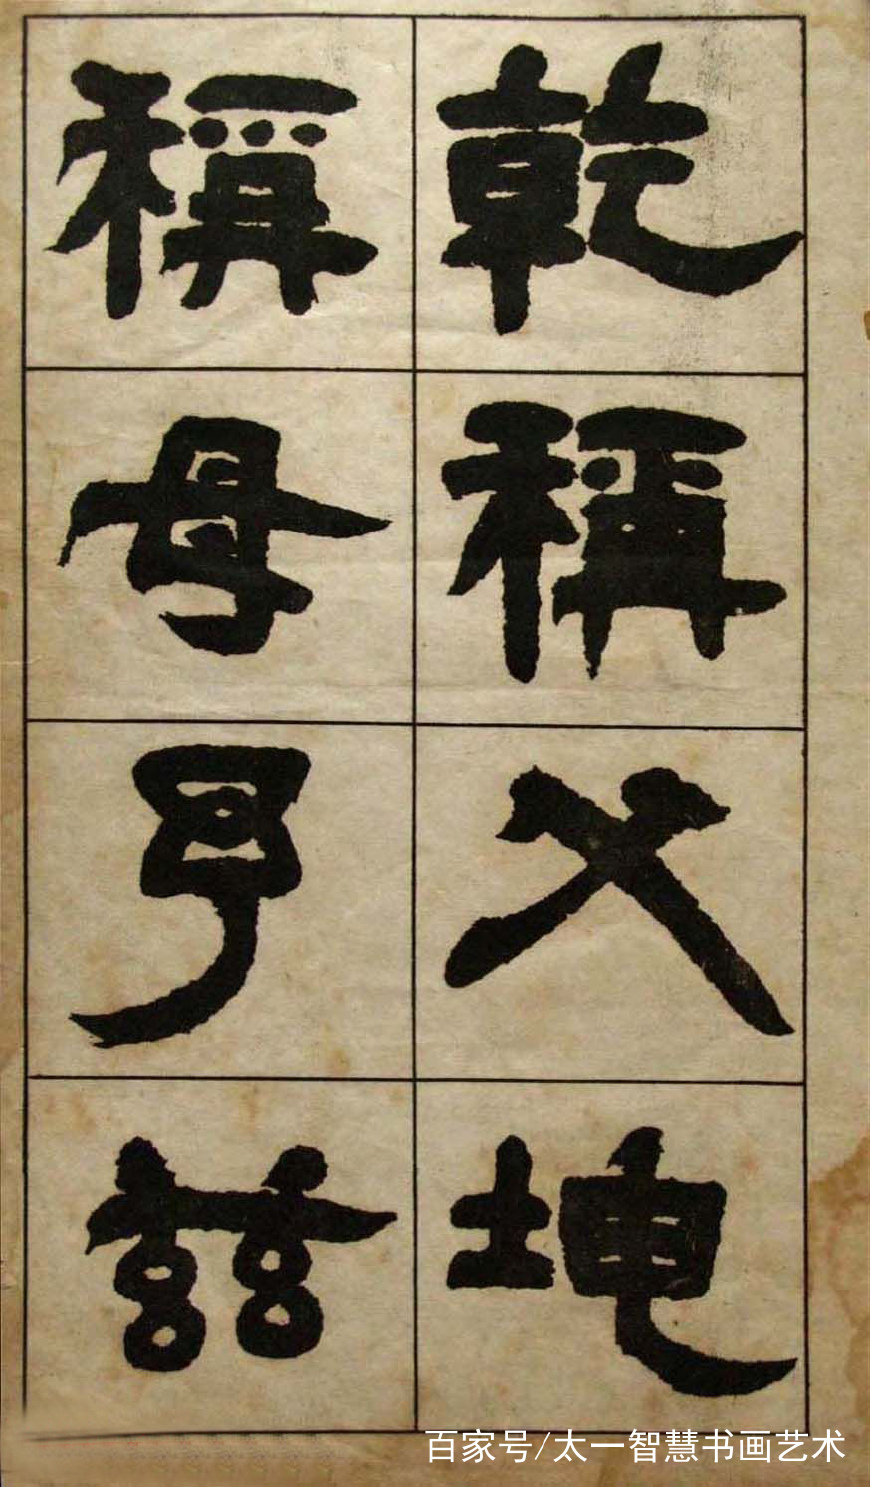 乾稱父坤
稱母予茲
百家号/太一智慧书画艺术